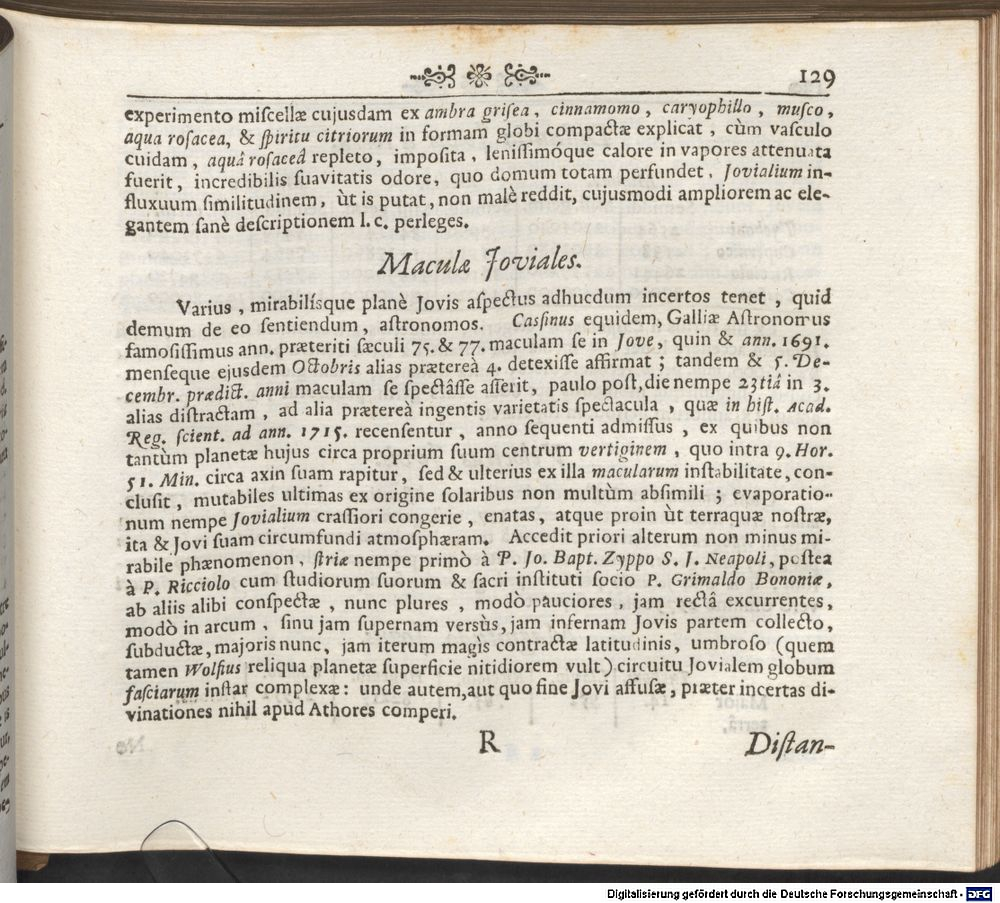 129
experimento miscellæ cujusdam ex ambra grisea, cinnamomo, caryophillo, musco,
aqua rosacea, & spiritu citriorum in formam globi compactæ explicat, cùm vasculo
cuidam, aquâ rosaceâ repleto, imposita, lenissimóque calore in vapores attenuata
fuerit, incredibilis suavitatis odore, quo domum totam perfundet, Jovialium in-
fluxuum similitudinem, ùt is putat, non malè reddit, cujusmodi ampliorem ac ele-
gantem sanè descriptionem l. c. perleges.
Maculæ Joviales.
Varius, mirabilísque planè Jovis aspectus adhucdum incertos tenet, quid
demum de eo sentiendum, astronomos. Cassinus equidem, Galliæ Astronomus
famosissimus ann. præteriti sæculi 75. & 77. maculam se in Jove, quin & ann. 1691.
menseque ejusdem Octobris alias prætereà 4. detexisse affirmat; tandem & 5. De-
cembr. prædict. anni maculam se spectâsse asserit, paulo post, die nempe 23tiâ in 3.
alias distractam, ad alia prætereà ingentis varietatis spectacula, quæ in hist. Acad.
Reg. scient. ad ann. 1715. recensentur, anno sequenti admissus, ex quibus non
tantùm planetæ hujus circa proprium suum centrum vertiginem, quo intra 9. Hor.
51. Min. circa axin suam rapitur, sed & ulterius ex illa macularum instabilitate, con-
clusit, mutabiles ultimas ex origine solaribus non multùm absimili; evaporatio-
num nempe Jovialium crassiori congerie, enatas, atque proin ùt terraquæ nostræ,
ita & Jovi suam circumfundi atmosphæram. Accedit priori alterum non minus mi-
rabile phænomenon, striæ nempe primò à P. Jo. Bapt. Zyppo S. J. Neapoli, postea
à P. Ricciolo cum studiorum suorum & sacri instituti socio P. Grimaldo Bononiæ,
ab aliis alibi conspectæ, nunc plures, modò pauciores, jam rectâ excurrentes,
modò in arcum, sinu jam supernam versùs, jam infernam Jovis partem collecto,
subductæ, majoris nunc, jam iterum magìs contractæ latitudinis, umbroso (quem
tamen Wolfius reliqua planetæ superficie nitidiorem vult) circuitu Jovialem globum
fasciarum instar complexæ: unde autem, aut quo fine Jovi affusæ, præter incertas di-
vinationes nihil apud Athores comperi.
R Distan-
Digitalisierung gefördert durch die Deutsche Forschungsgemeinschaft - DFG